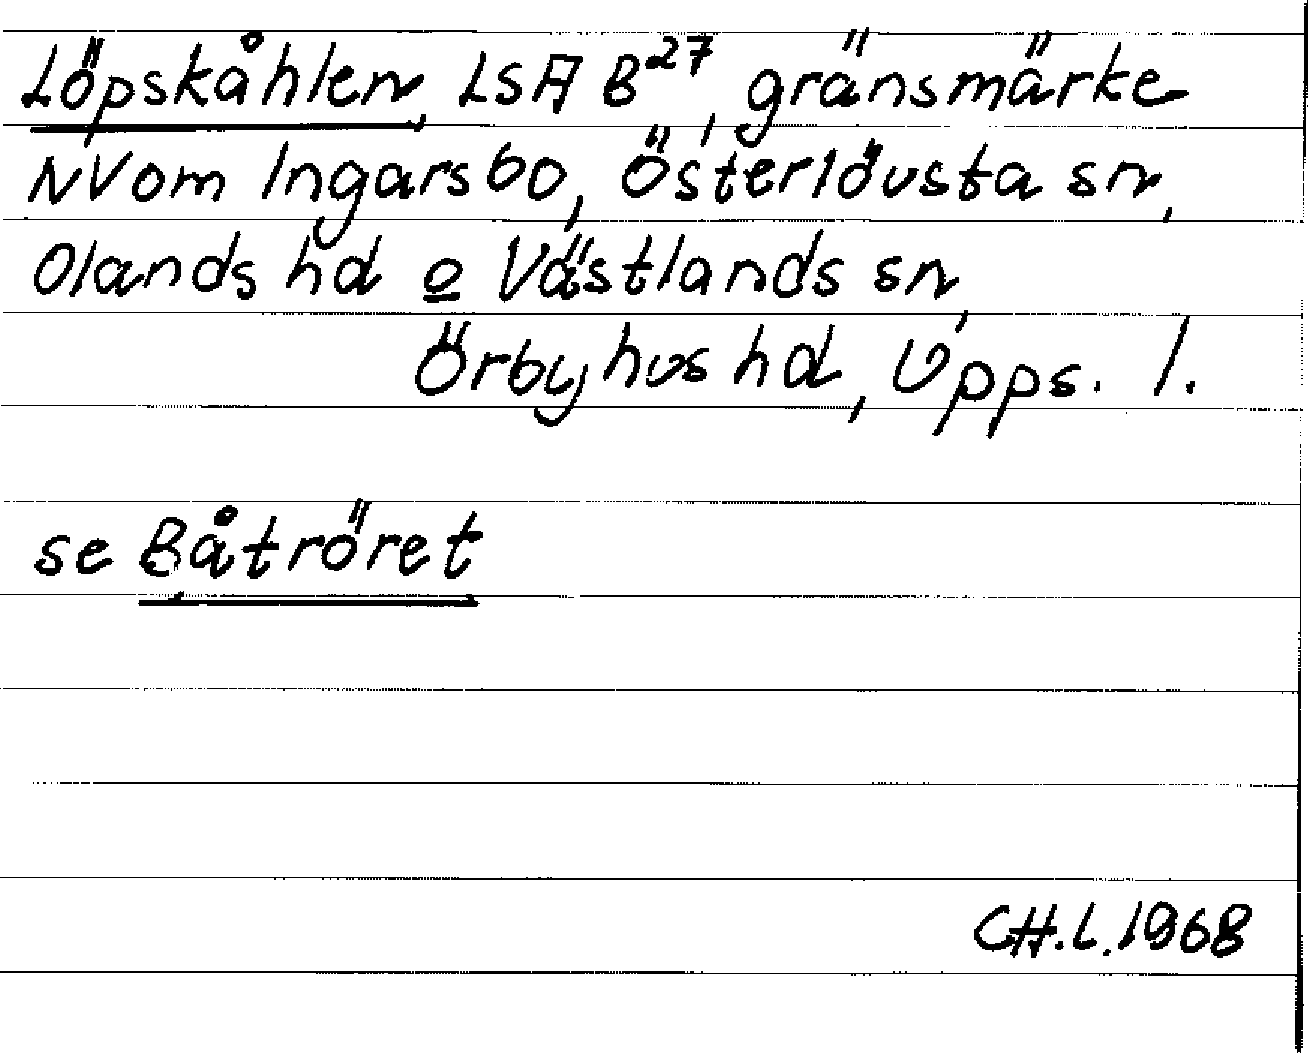 Löpskåhlen, LSA B27, gränsmärke
NV om Ingarsbo, Österlövsta sn,
Olands hd o Västlands sn,
Örbyhus hd, Upps. l.
se Båtröret
CH.L.1968